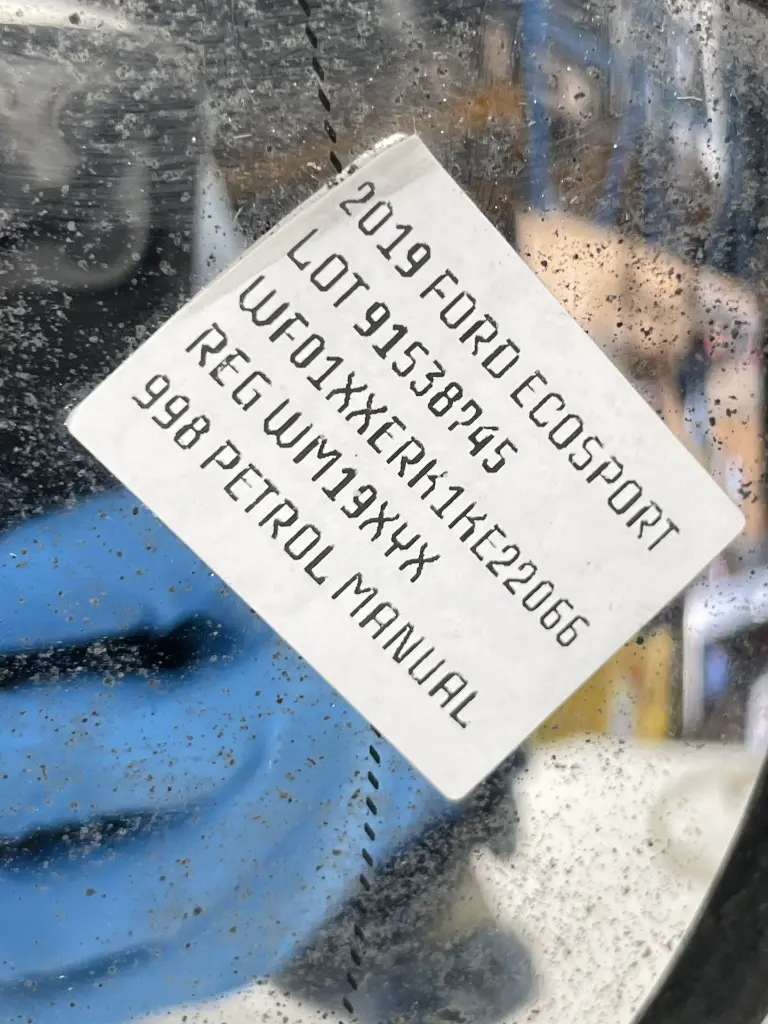 2019 FORD ECOSPORT
LOT 91538745
WF01XXERK1KE22066
REG WM19XYX
998 PETROL MANUAL